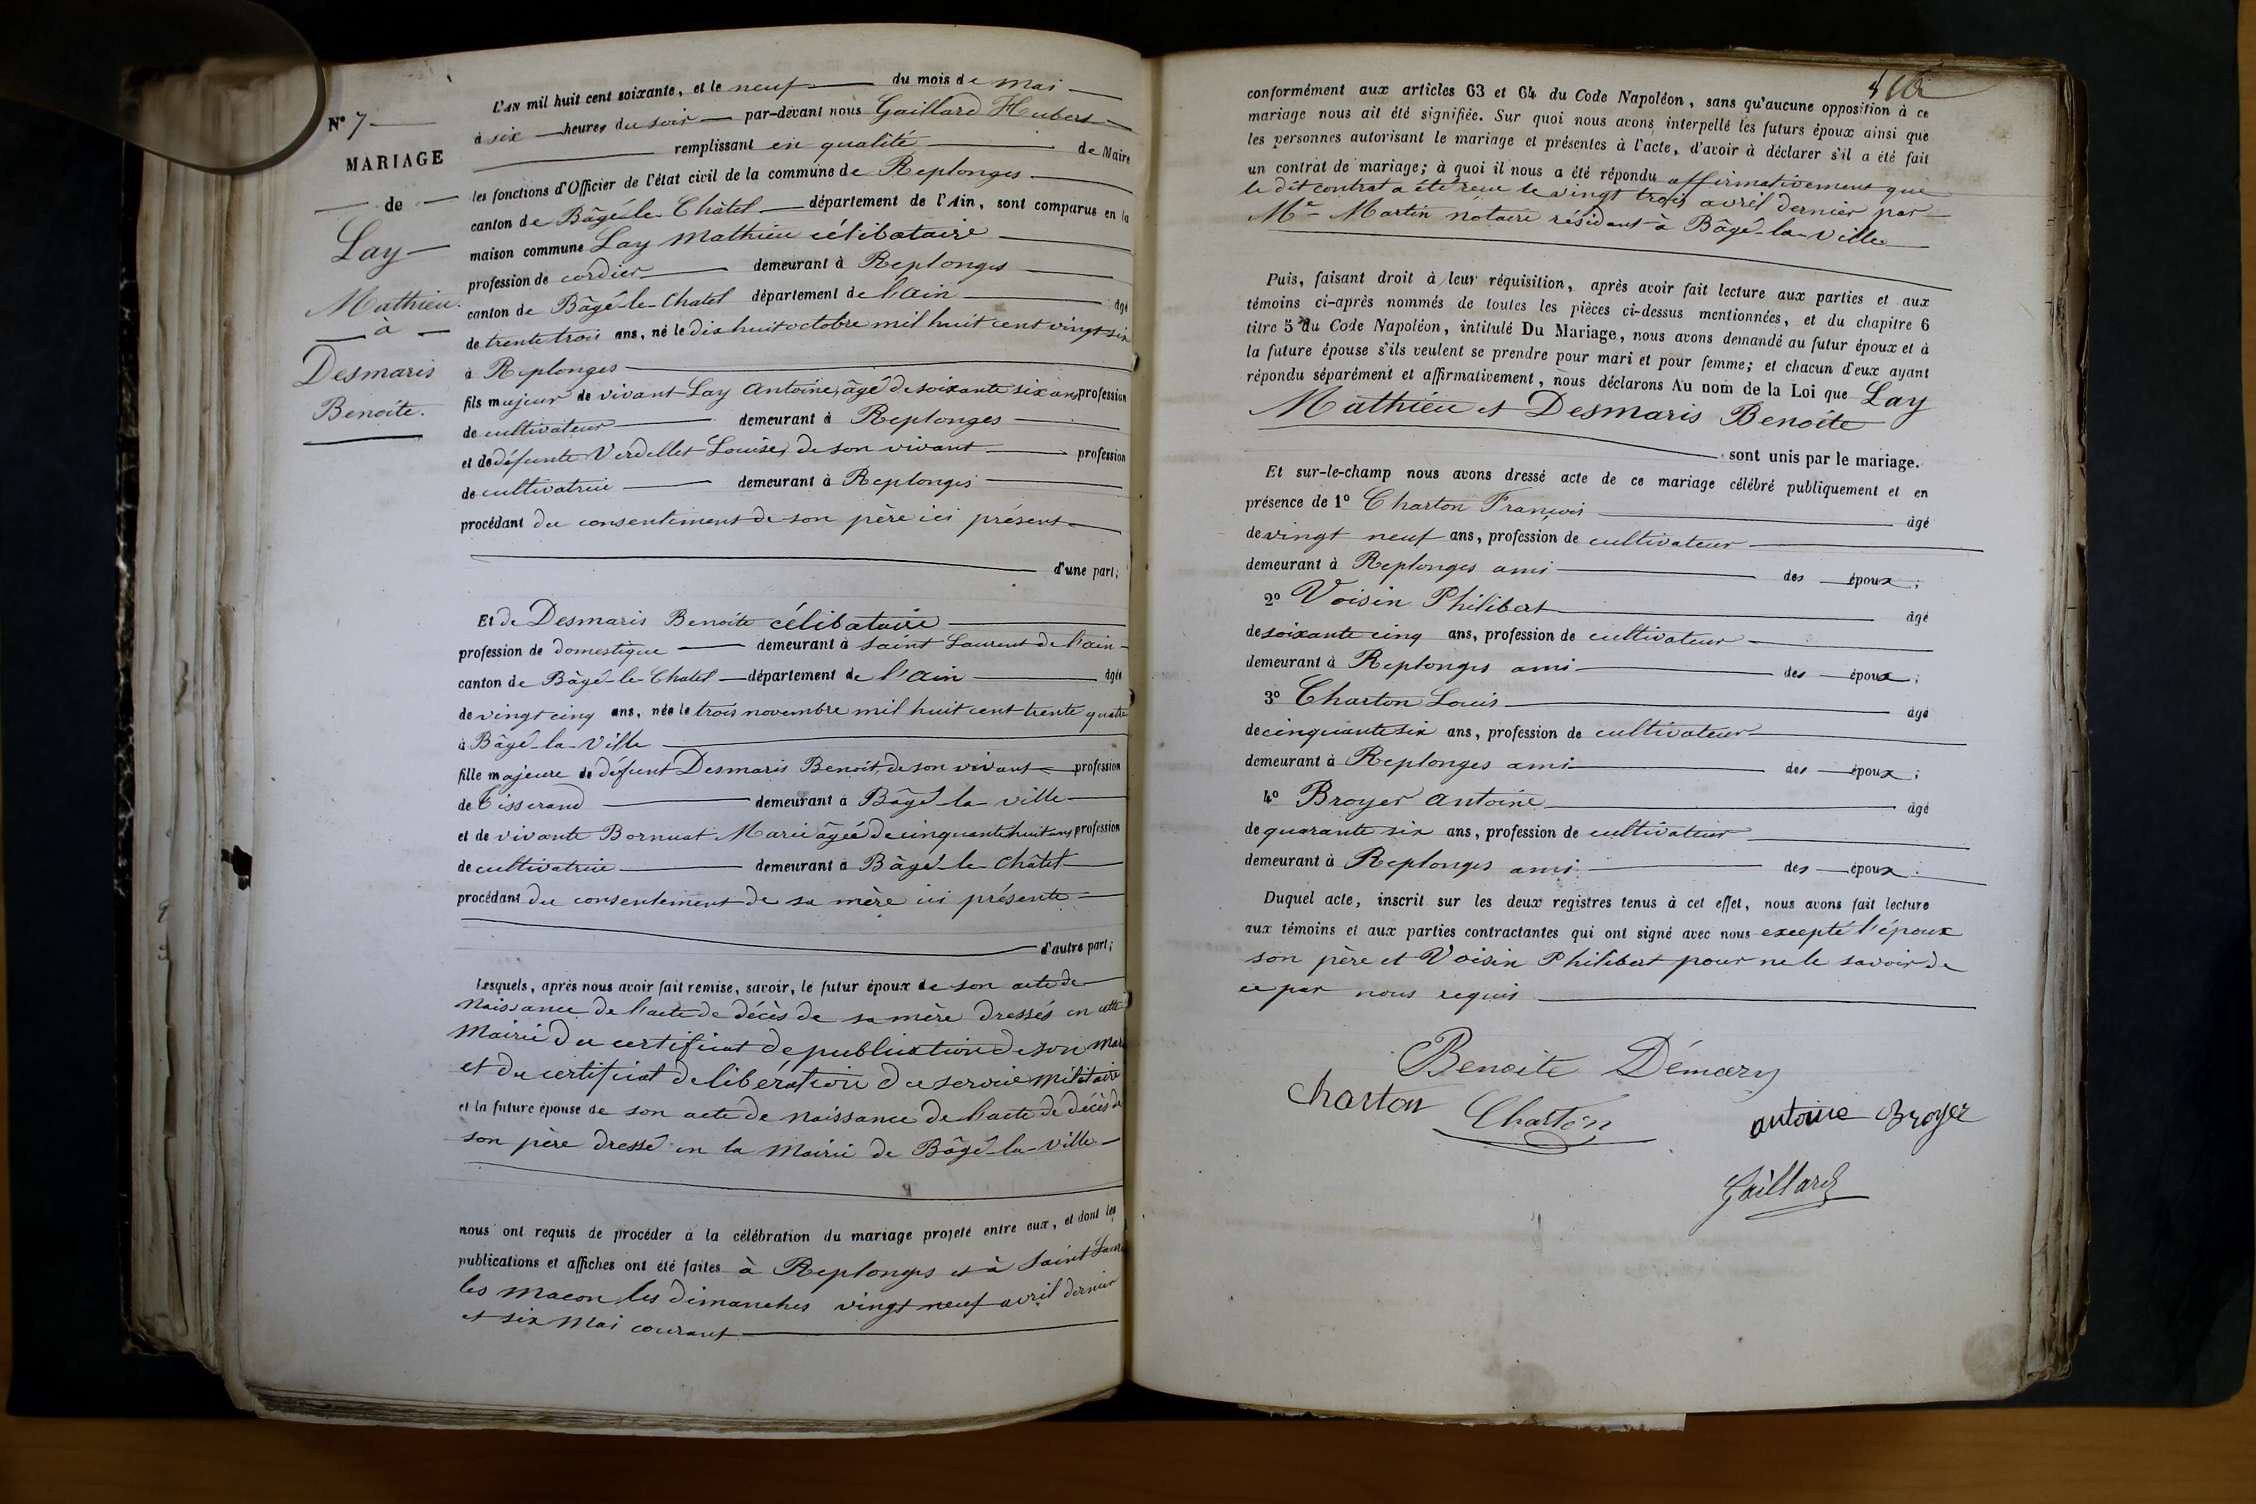 N° 7
MARIAGE
de
Lay
Mathieu
à
Desmaris
Benoîte.
L'AN mil huit cent soixante, et le neuf du mois de Mai
à six heures du soir par-devant nous Gaillard Hubert
remplissant en qualité de Maire
les fonctions d'Officier de l'état civil de la commune de Replonges
canton de Bâgé-le-Châtel département de l'Ain, sont comparus en la
maison commune Lay Mathieu célibataire
profession de cordier demeurant à Replonges
canton de Bâgé-le-Chatel département de l'ain âgé
de trente trois ans, né le dix huit octobre mil huit cent vingt six
à Replonges
fils majeur de vivant Lay Antoine, âgé de soixante six ans profession
de cultivateur demeurant à Replonges
et de défunte Verdellet Louise, de son vivant profession
de cultivatrice demeurant à Replonges
procédant du consentement de son père ici présent
d'une part;
Et de Desmaris Benoite célibataire
profession de domestique demeurant à saint Laurent de l'ain
canton de Bâgé-le-Chatel département de l'ain âgée
de vingt cinq ans, née le trois novembre mil huit cent trente quatre
à Bâgé-la-Ville
fille majeure de défunt Desmaris Benoit, de son vivant profession
de Tisserand demeurant à Bâgé-la-ville
et de vivante Bornuat Marie âgée de cinquante huit ans profession
de cultivatrice demeurant à Bâgé-le-Châtel
procédant du consentement de sa mère ici présente
d'autre part;
Lesquels, après nous avoir fait remise, savoir, le futur époux de son acte de
Naissance de l'acte de décès de sa mère dressés en cette
Mairie du certificat de publication de son
et du certificat de libération du service militaire
et la future épouse de son acte de naissance de l'acte de décès de
son père dressé en la Mairie de Bâgé-la-Ville
nous ont requis de procéder à la célébration du mariage projeté entre eux, et dont les
publications et affiches ont été faites à Replonges et à Saint
les Macon les dimanches vingt neuf avril dernier
et six Mai courant
conformément aux articles 63 et 64 du Code Napoléon, sans qu'aucune opposition à ce
mariage nous ait été signifiée. Sur quoi nous avons interpellé les futurs époux ainsi que
les personnes autorisant le mariage et présentes à l'acte, d'avoir à déclarer s'il a été fait
un contrat de mariage; à quoi il nous a été répondu affirmativement que
le dit contrat a été reçu le vingt trois avril dernier par
Me Martin notaire résidant à Bâgé-la-Ville
Puis, faisant droit à leur réquisition, après avoir fait lecture aux parties et aux
témoins ci-après nommés de toutes les pièces ci-dessus mentionnées, et du chapitre 6
titre 5 du Code Napoléon, intitulé Du Mariage, nous avons demandé au futur époux et à
la future épouse s'ils veulent se prendre pour mari et pour femme; et chacun d'eux ayant
répondu séparément et affirmativement, nous déclarons Au nom de la Loi que Lay
Mathieu et Desmaris Benoîte
sont unis par le mariage.
Et sur-le-champ nous avons dressé acte de ce mariage célébré publiquement et en
présence de 1° Charton François âgé
de vingt neuf ans, profession de cultivateur
demeurant à Replonges ami des époux;
2° Voisin Philibert âgé
de soixante cinq ans, profession de cultivateur
demeurant à Replonges ami des époux;
3° Charton Louis âgé
de cinquante six ans, profession de cultivateur
demeurant à Replonges ami des époux;
4° Broyer antoine âgé
de quarante six ans, profession de cultivateur
demeurant à Replonges ami des époux.
Duquel acte, inscrit sur les deux registres tenus à cet effet, nous avons fait lecture
aux témoins et aux parties contractantes qui ont signé avec nous excepté l'époux
son père et Voisin Philibert pour ne le savoir de
ce par nous requis
Benoite Démary
Charton
Charton
antoine Broyer
Gaillard